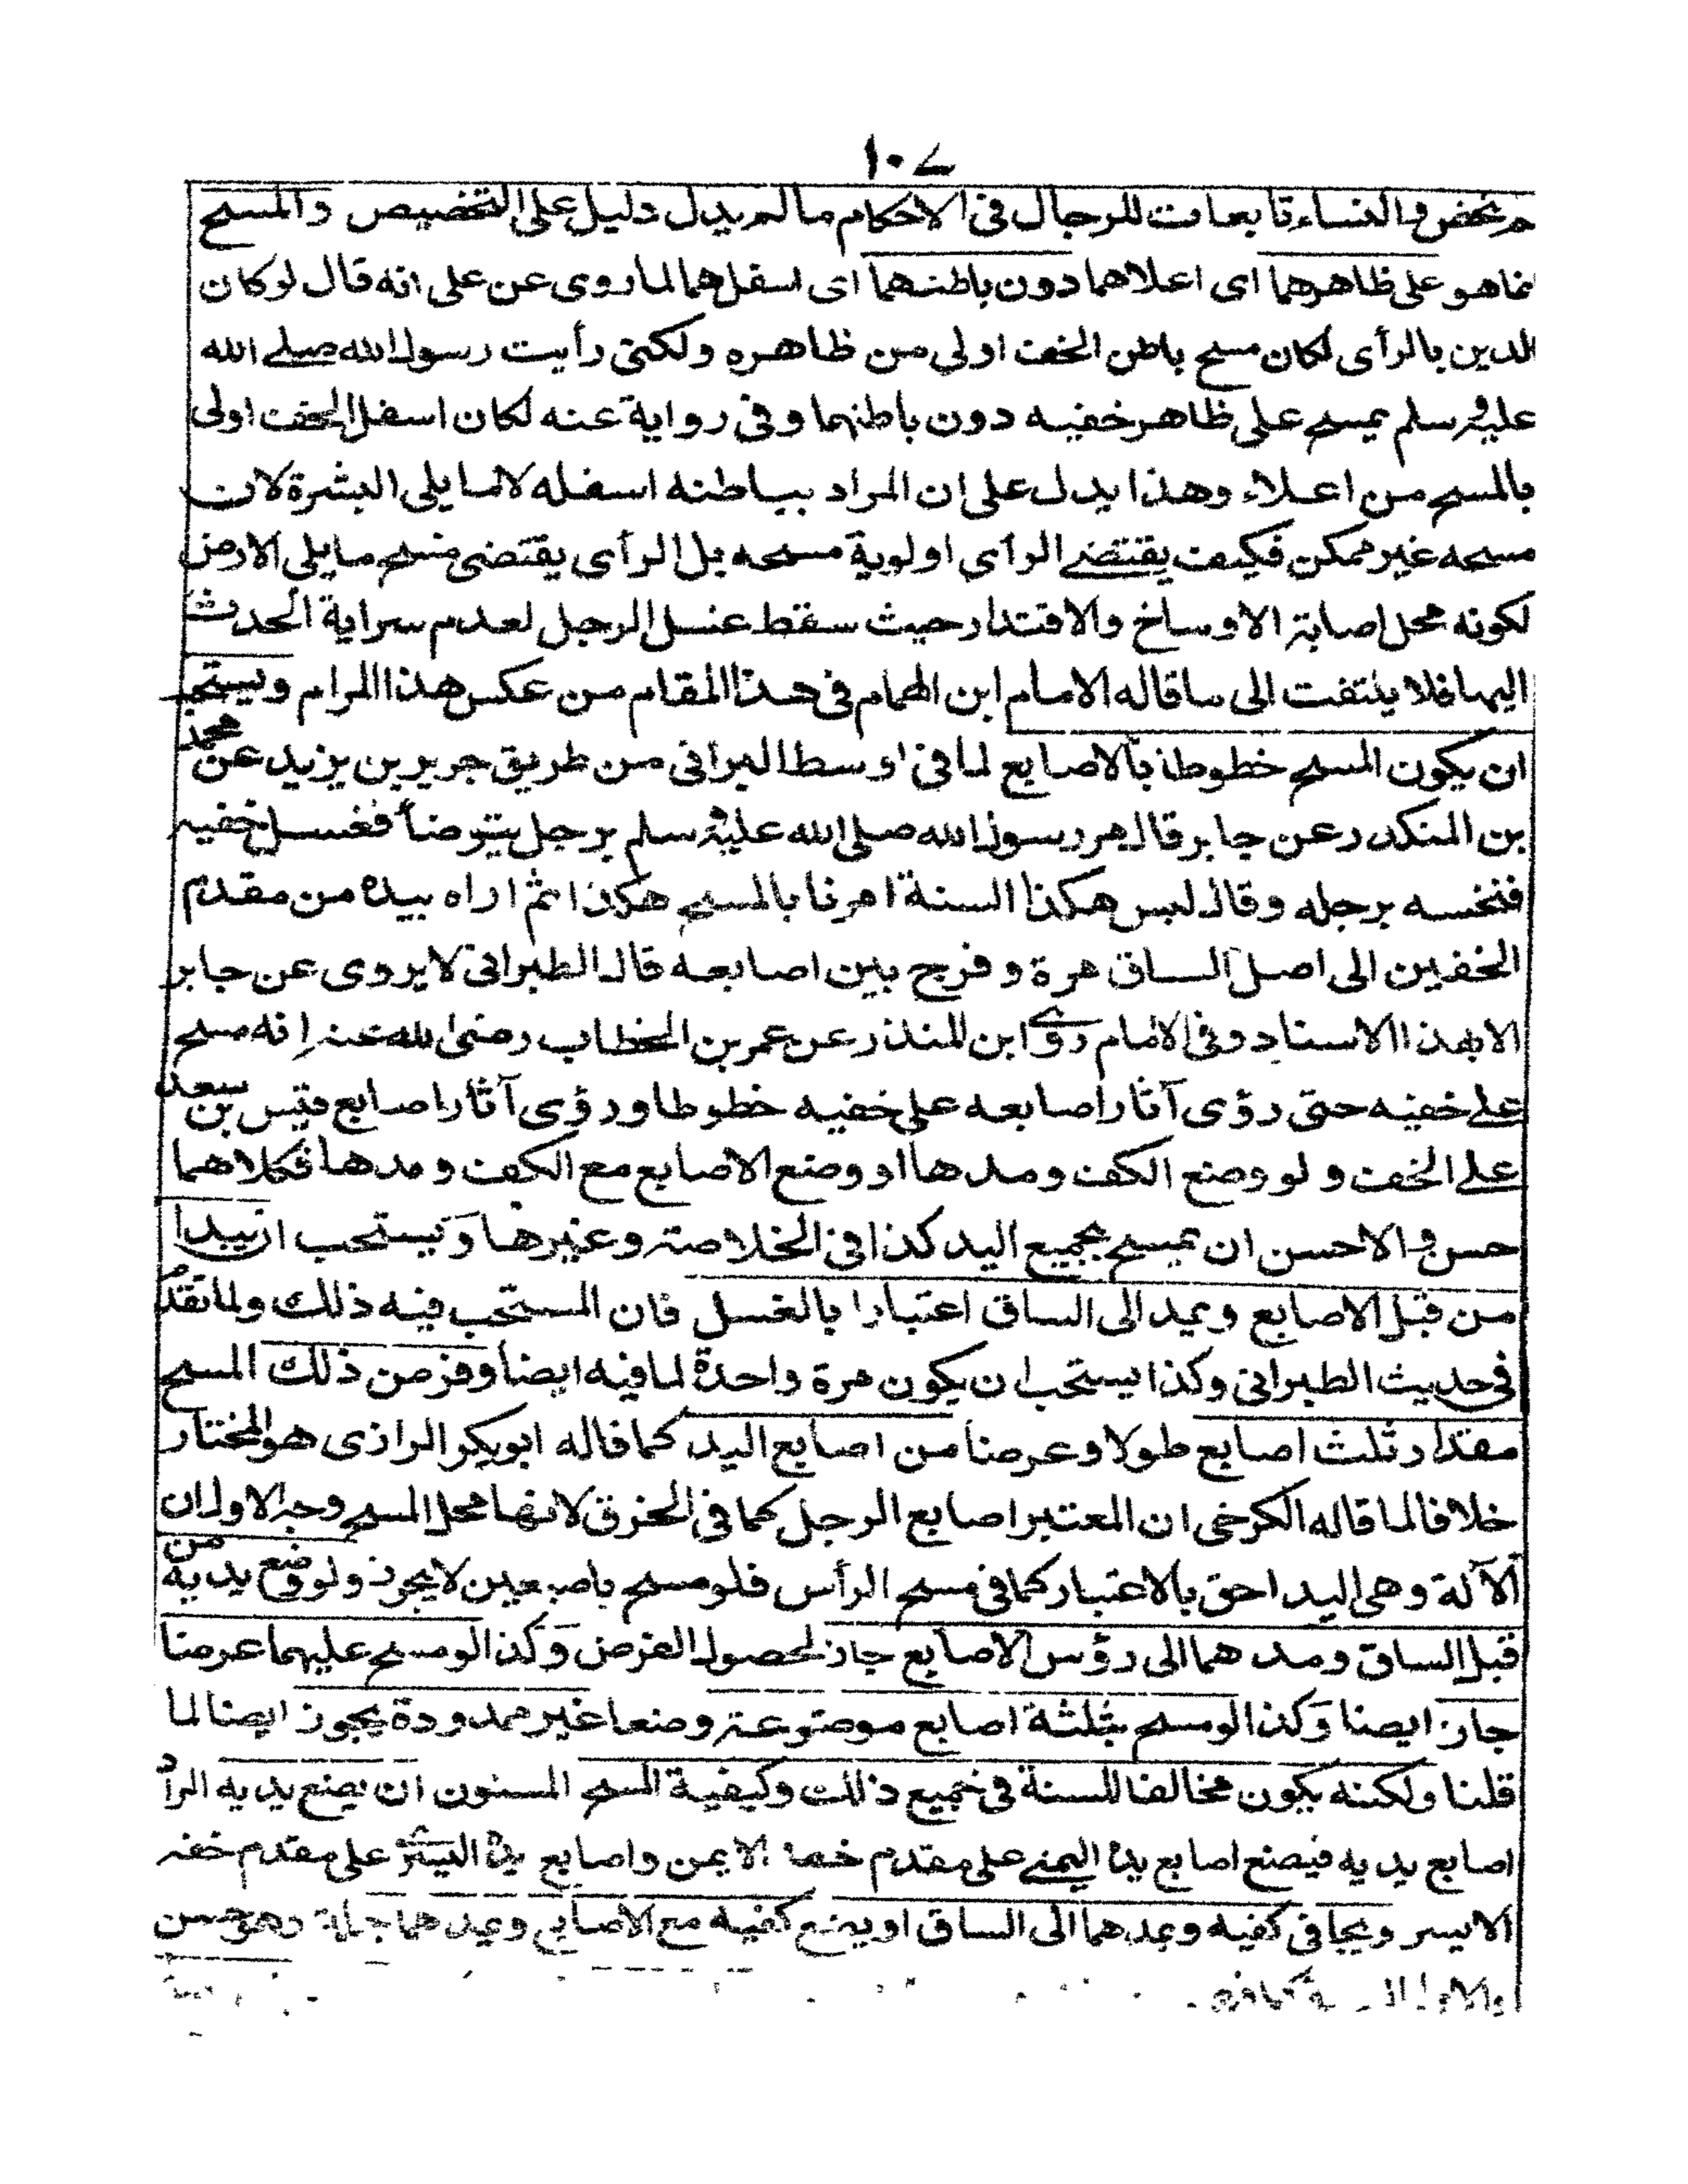 ١٠٧
م يخفض والنساء تابعات للرجال فى الاحكام مالم يدل دليل على التخصيص والمسح
انما هو على ظاهرهما اى اعلاهما دون باطنهما اى اسفلهما لما روى عن على انه قال لو كان
الدين بالرأى لكان مسح باطن الخف اولى من ظاهره ولكنى رأيت رسول الله صلے الله
عليه وسلم يمسح على ظاهر خفيه دون باطنهما وفى رواية عنه لكان اسفل الخف اولى
بالمسح من اعلاء وهذا يدل على ان المراد بباطنه اسفله لا ما يلى البشرة لان
مسحه غير ممكن فكيف يقتضے الرأى اولوية مسحه بل الرأى يقتضى مسح ما يلى الارض
لكونه محل اصابة الاوساخ والاقتدار حيث سقط غسل الرجل لعدم سراية الحدث
اليها فلا يلتفت الى ما قاله الامام ابن الهمام فى هذا المقام من عكس هذا المرام ويستحب
ان يكون المسح خطوطا بالاصابع لما فى اوسط البرانى من طريق جرير بن يزيد عن محمد
بن المنكدر عن جابر قال مر رسول الله صلى الله عليه وسلم برجل يتوضأ فغسل خفيه
فنخسه برجله وقال ليس هكذا السنة امرنا بالمسح هكذا ثم اراه بيده من مقدم
الخفين الى اصل الساق مرة وفرج بين اصابعه قال الطبرانى لا يروى عن جابر
الا بهذا الاسناد وفى الامام روى ابن المنذر عن عمر بن الخطاب رضى الله عنه انه مسح
علے خفيه حتى رؤى آثار اصابعه على خفيه خطوطا ورؤى آثار اصابع قيس بن سعد
علے الخف ولو وضع الكف ومدها او وضع الاصابع مع الكف ومدها فكلاهما
حسن والاحسن ان يمسح بجميع اليد كذا فى الخلاصة وغيرها ويستحب ان يبدا
من قبل الاصابع ويمد الى الساق اعتبارا بالغسل فان المستحب فيه ذلك ولما تقدم
فى حديث الطبرانى وكذا يستحب ان يكون مرة واحدة لما فيه ايضا وفرض ذلك المسح
مقدار ثلث اصابع طولا وعرضا من اصابع اليد كما قاله ابو بكر الرازى هو المختار
خلافا لما قاله الكرخى ان المعتبر اصابع الرجل كما فى الخرق لانها محل المسح وجه الاول ان
الآلة وهى اليد احق بالاعتبار كما فى مسح الرأس فلو مسح باصبعين لا يجوز ولو وضع يديه من
قبل الساق ومدهما الى رؤس الاصابع جاز لحصول الفرض وكذا لو مسح عليهما عرضا
جاز ايضا وكذا لو مسح بثلثة اصابع موضوعة وضعا غير ممدودة يجوز ايضا لما
قلنا ولكنه يكون مخالفا للسنة فى جميع ذلك وكيفية المسح المسنون ان يضع يديه
اصابع يديه فيضع اصابع يده اليمنے على مقدم خفه الايمن واصابع يده اليسرى على مقدم خفه
الايسر ويجافى كفيه ويمدهما الى الساق او يضع كفيه مع الاصابع ويمدهما جملة وهو حسن